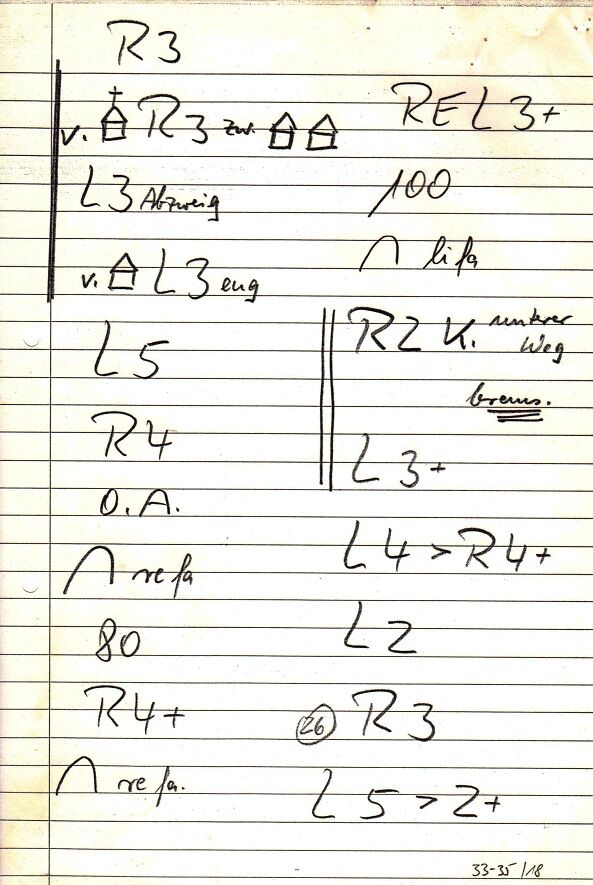 R3
v. R3 zw.
L3 Abzweig
v. L3 eng
L5
R4
O.A.
re fa
80
R4+
re fa.
REL3+
100
li fa
R2 K. unterer
Weg
brems.
L3+
L4 > R4+
L2
26 R3
L5 > 2+
33-35/18